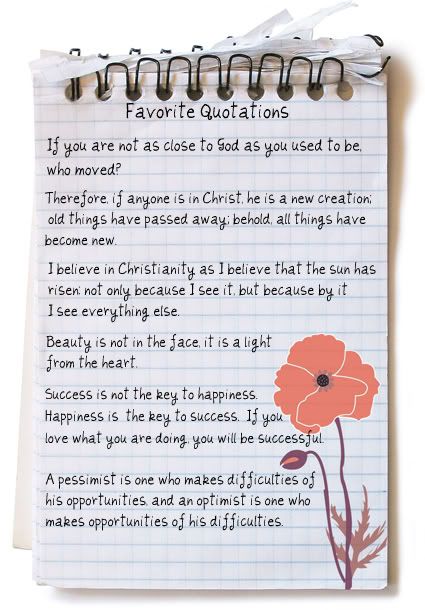 Favorite Quotations
If you are not as close to God as you used to be,
who moved?
Therefore, if anyone is in Christ, he is a new creation;
old things have passed away; behold, all things have
become new.
I believe in Christianity as I believe that the sun has
risen: not only because I see it, but because by it
I see everything else.
Beauty is not in the face, it is a light
from the heart.
Success is not the key to happiness.
Happiness is the key to success. If you
love what you are doing, you will be successful.
A pessimist is one who makes difficulties of
his opportunities, and an optimist is one who
makes opportunities of his difficulties.